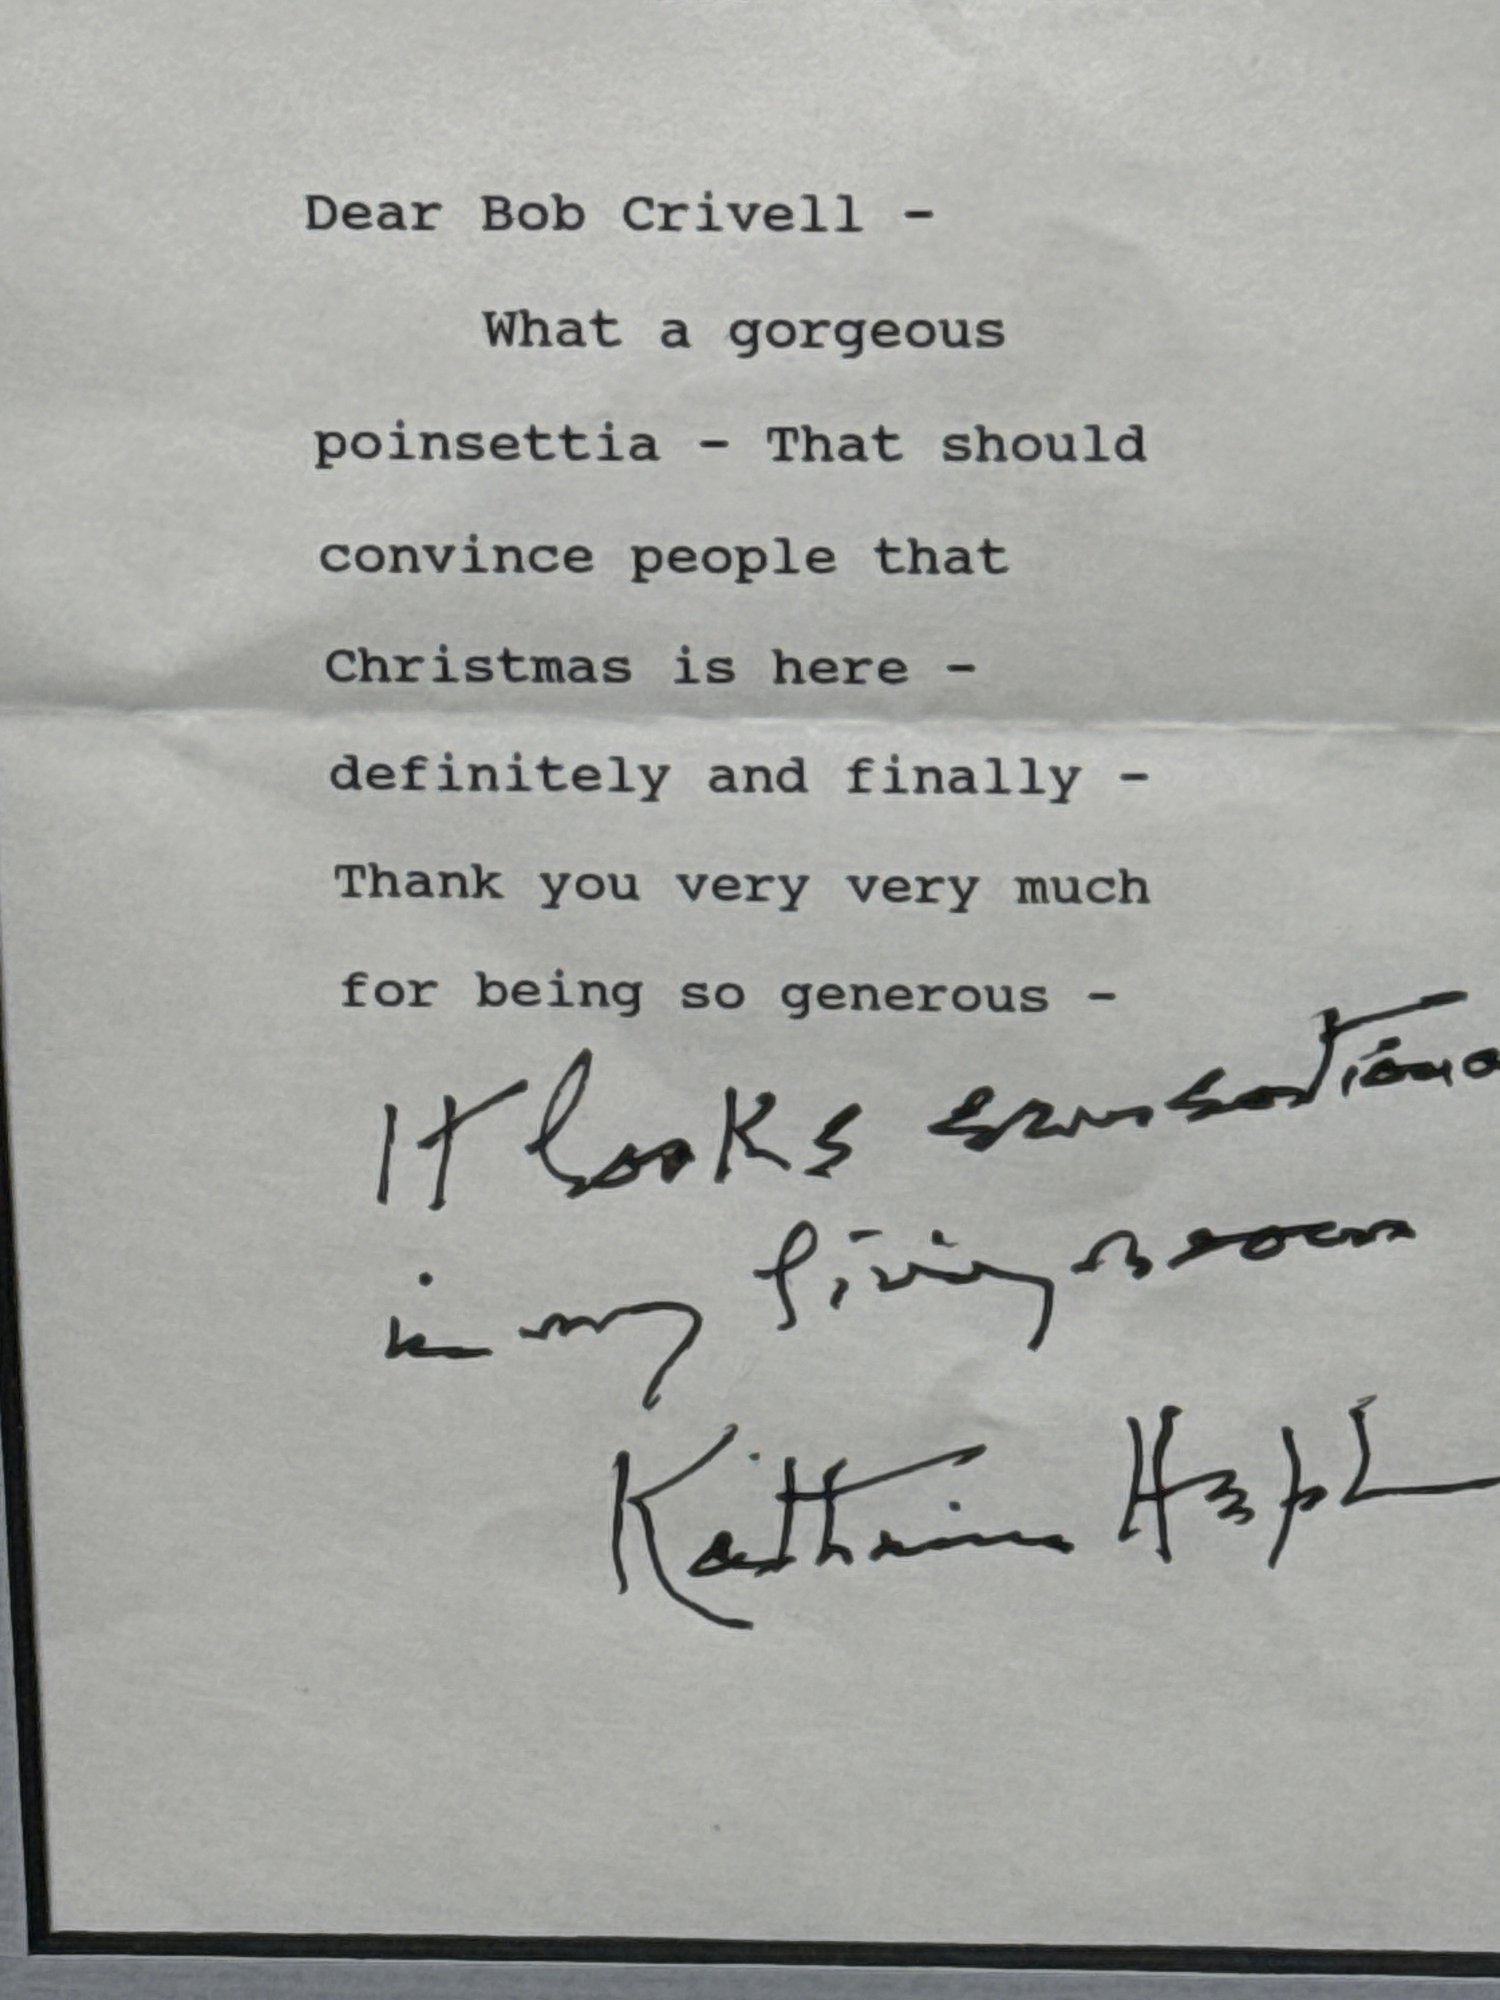 Dear Bob Crivell -
What a gorgeous
poinsettia - That should
convince people that
Christmas is here -
definitely and finally -
Thank you very very much
for being so generous -
It looks sensationa
in my living room
Katharine Hepb